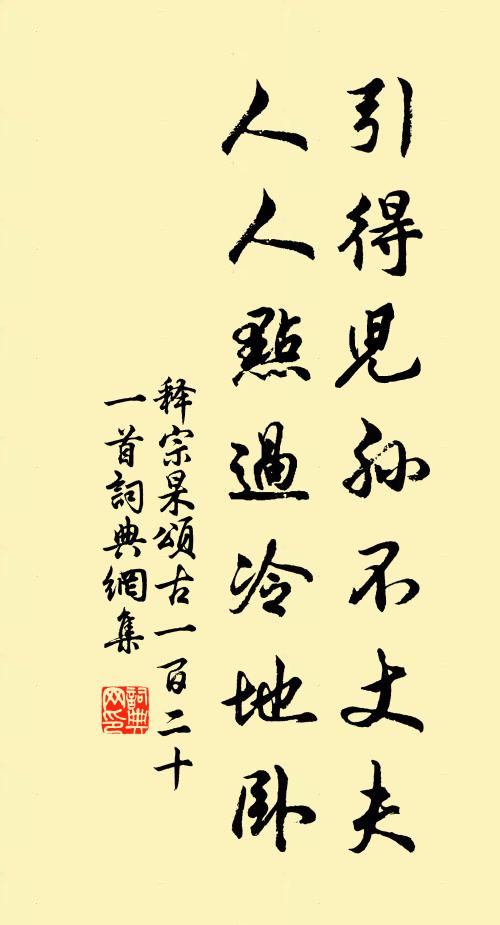 引得児孫不丈夫
人人點過冷地卧
释宗杲頌古一百二十
一首詞典網集
詞典
网印